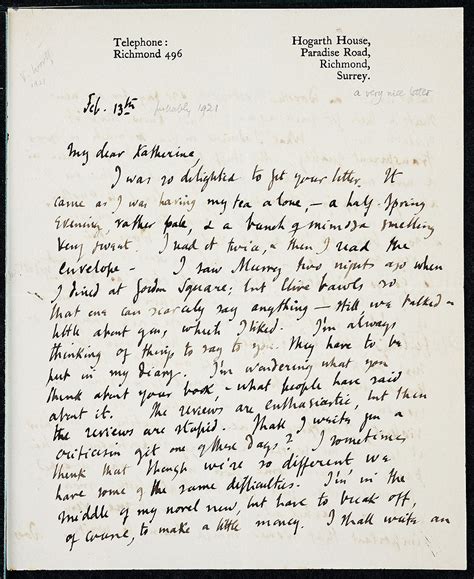 Telephone:
Richmond 496
Hogarth House,
Paradise Road,
Richmond,
Surrey.
V. Woolf
1921
a very nice letter
Feb. 13th probably 1921
My dear Katherine,
I was so delighted to get your letter. It
came as I was having my tea alone, – a half-spring
evening, rather pale, & a bunch of mimosa smelling
very sweet. I read it twice, & then I read the
envelope – I saw Murry two nights ago when
I dined at Gordon Square; but Clive bawls so
that one can scarcely say anything – still, we talked a
little about you, which I liked. I'm always
thinking of things to say to you. They have to be
put in my diary. I'm wondering what you
think about your book, – what people have said
about it. The reviews are enthusiastic, but then
the reviews are stupid. Shall I write you a
criticism one of these days? I sometimes
think that though we're so different we
have some of the same difficulties. I'm in the
middle of my novel now, but have to break off,
of course, to make a little money. I shall write an